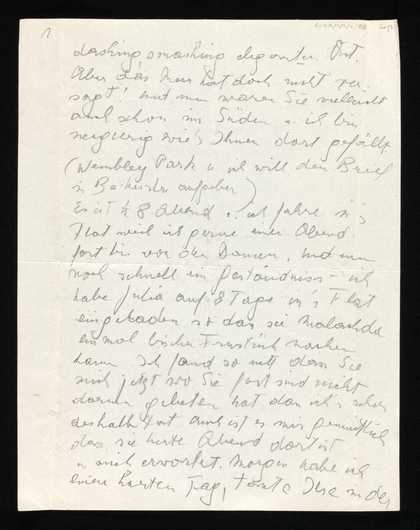 1
dashing, smashing eleganten Ort.
Aber das Herz hat doch nicht ver-
sagt! und nun waren Sie vielleicht
auch schon im Süden u ich bin
neugierig wie's Ihnen dort gefällt
(Wembley Park u ich will den Brief
in Baker str aufgeben)
Es ist ½ 8 Abend ich fahre in's
Flat weil ich gerne einen Abend
fort bin von den Damen, und nun
noch schnell ein Geständniss – ich
habe Julia auf 8 Tage in's Flat
eingeladen so das sie
ein mal bischen Frustück machen
kann Ich fand so nett dass Sie
mich jetzt wo Sie fort sind nicht
darum gebeten hat dan ich's schon
deshalb tat auch ist es mir gemütlich
das sie heute Abend dort ist
u mich erwartet. Morgen habe ich
einen harten Tag, Tante in der